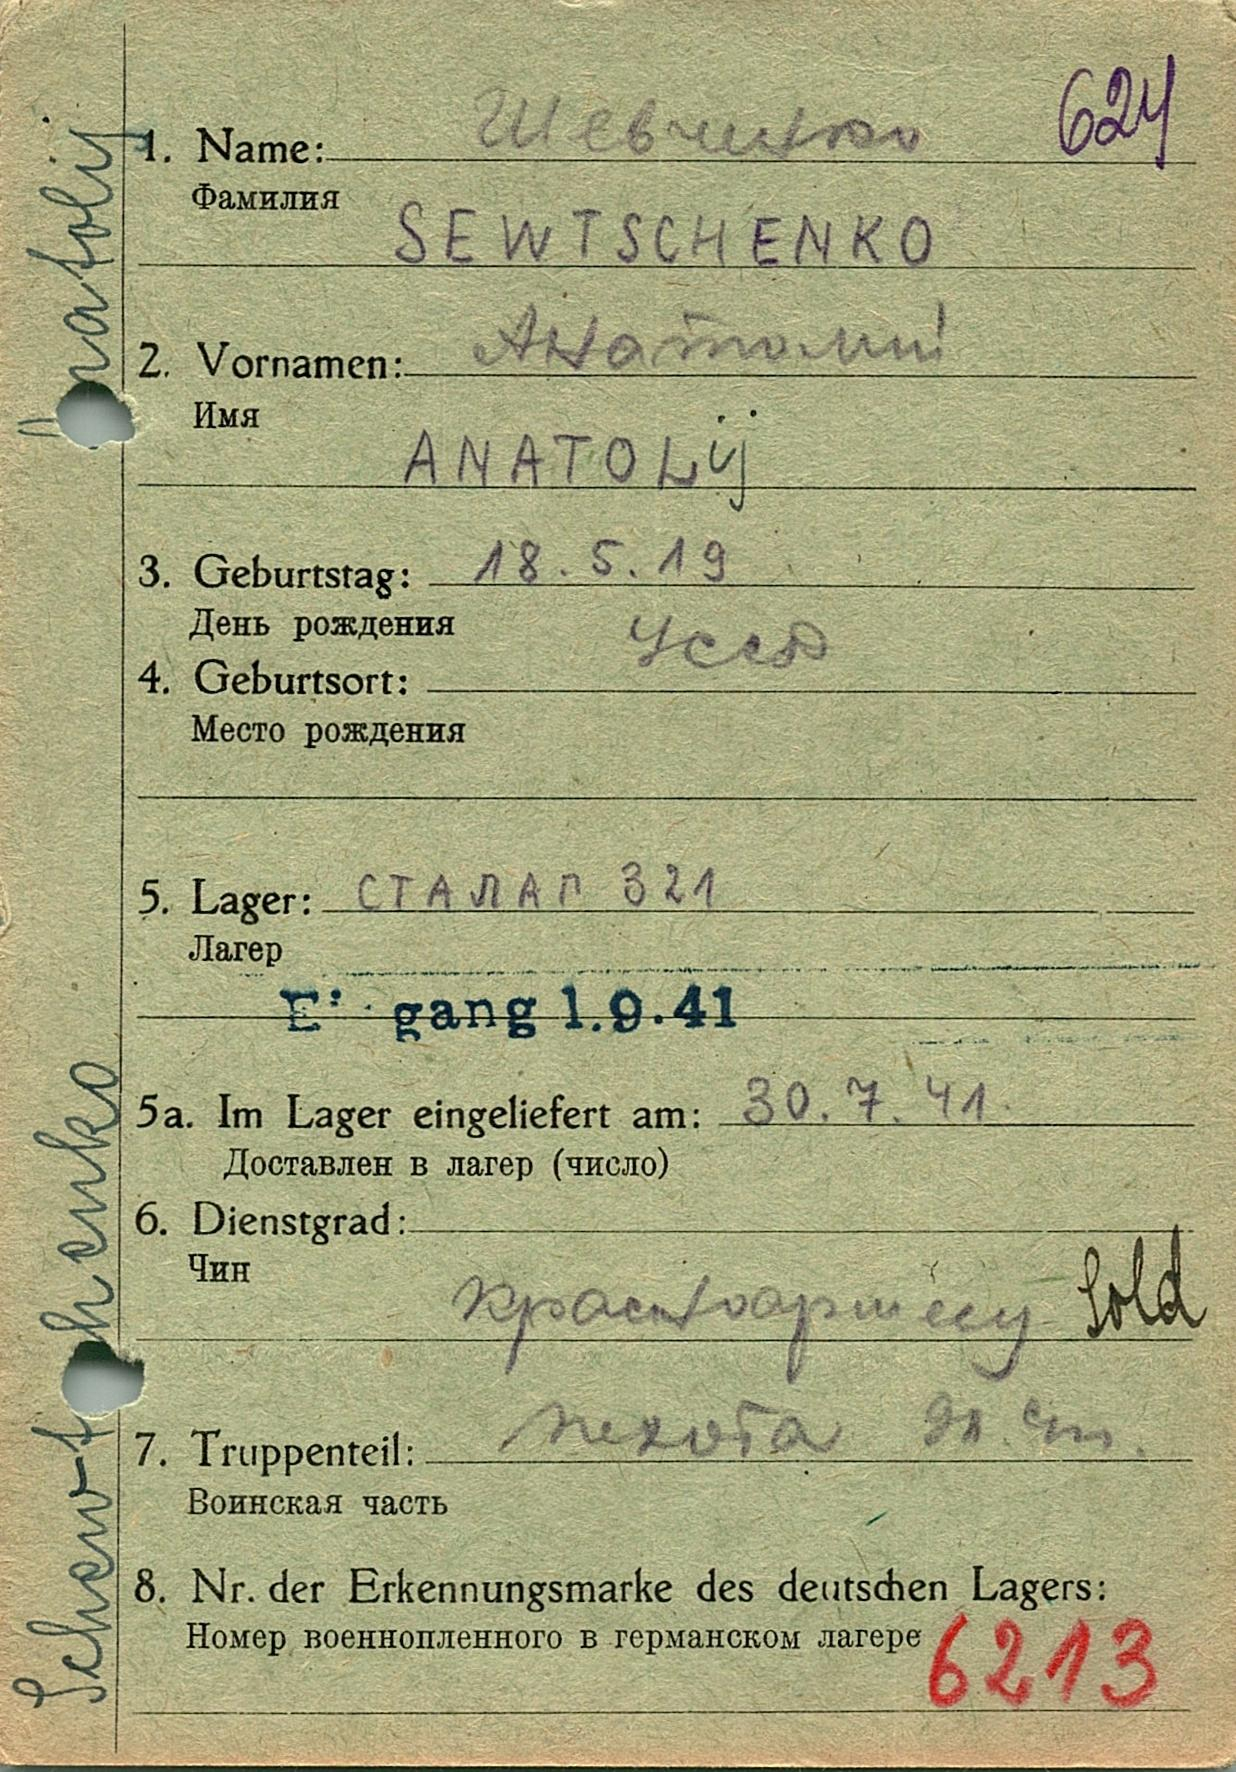 624
1. Name: Шевченко
Фамилия
SEWTSCHENKO
2. Vornamen: Анатолий
Имя
ANATOLij
3. Geburtstag: 18.5.19
День рождения
4. Geburtsort: УССР
Место рождения
5. Lager: СТАЛАГ 321
Лагер
E gang 1.9.41
5a. Im Lager eingeliefert am: 30.7.41.
Доставлен в лагер (число)
6. Dienstgrad:
Чин
красноармеец Sold
7. Truppenteil: пехота
Воинская часть
8. Nr. der Erkennungsmarke des deutschen Lagers:
Номер военнопленного в германском лагере 6213
Schewtschenko Anatolij